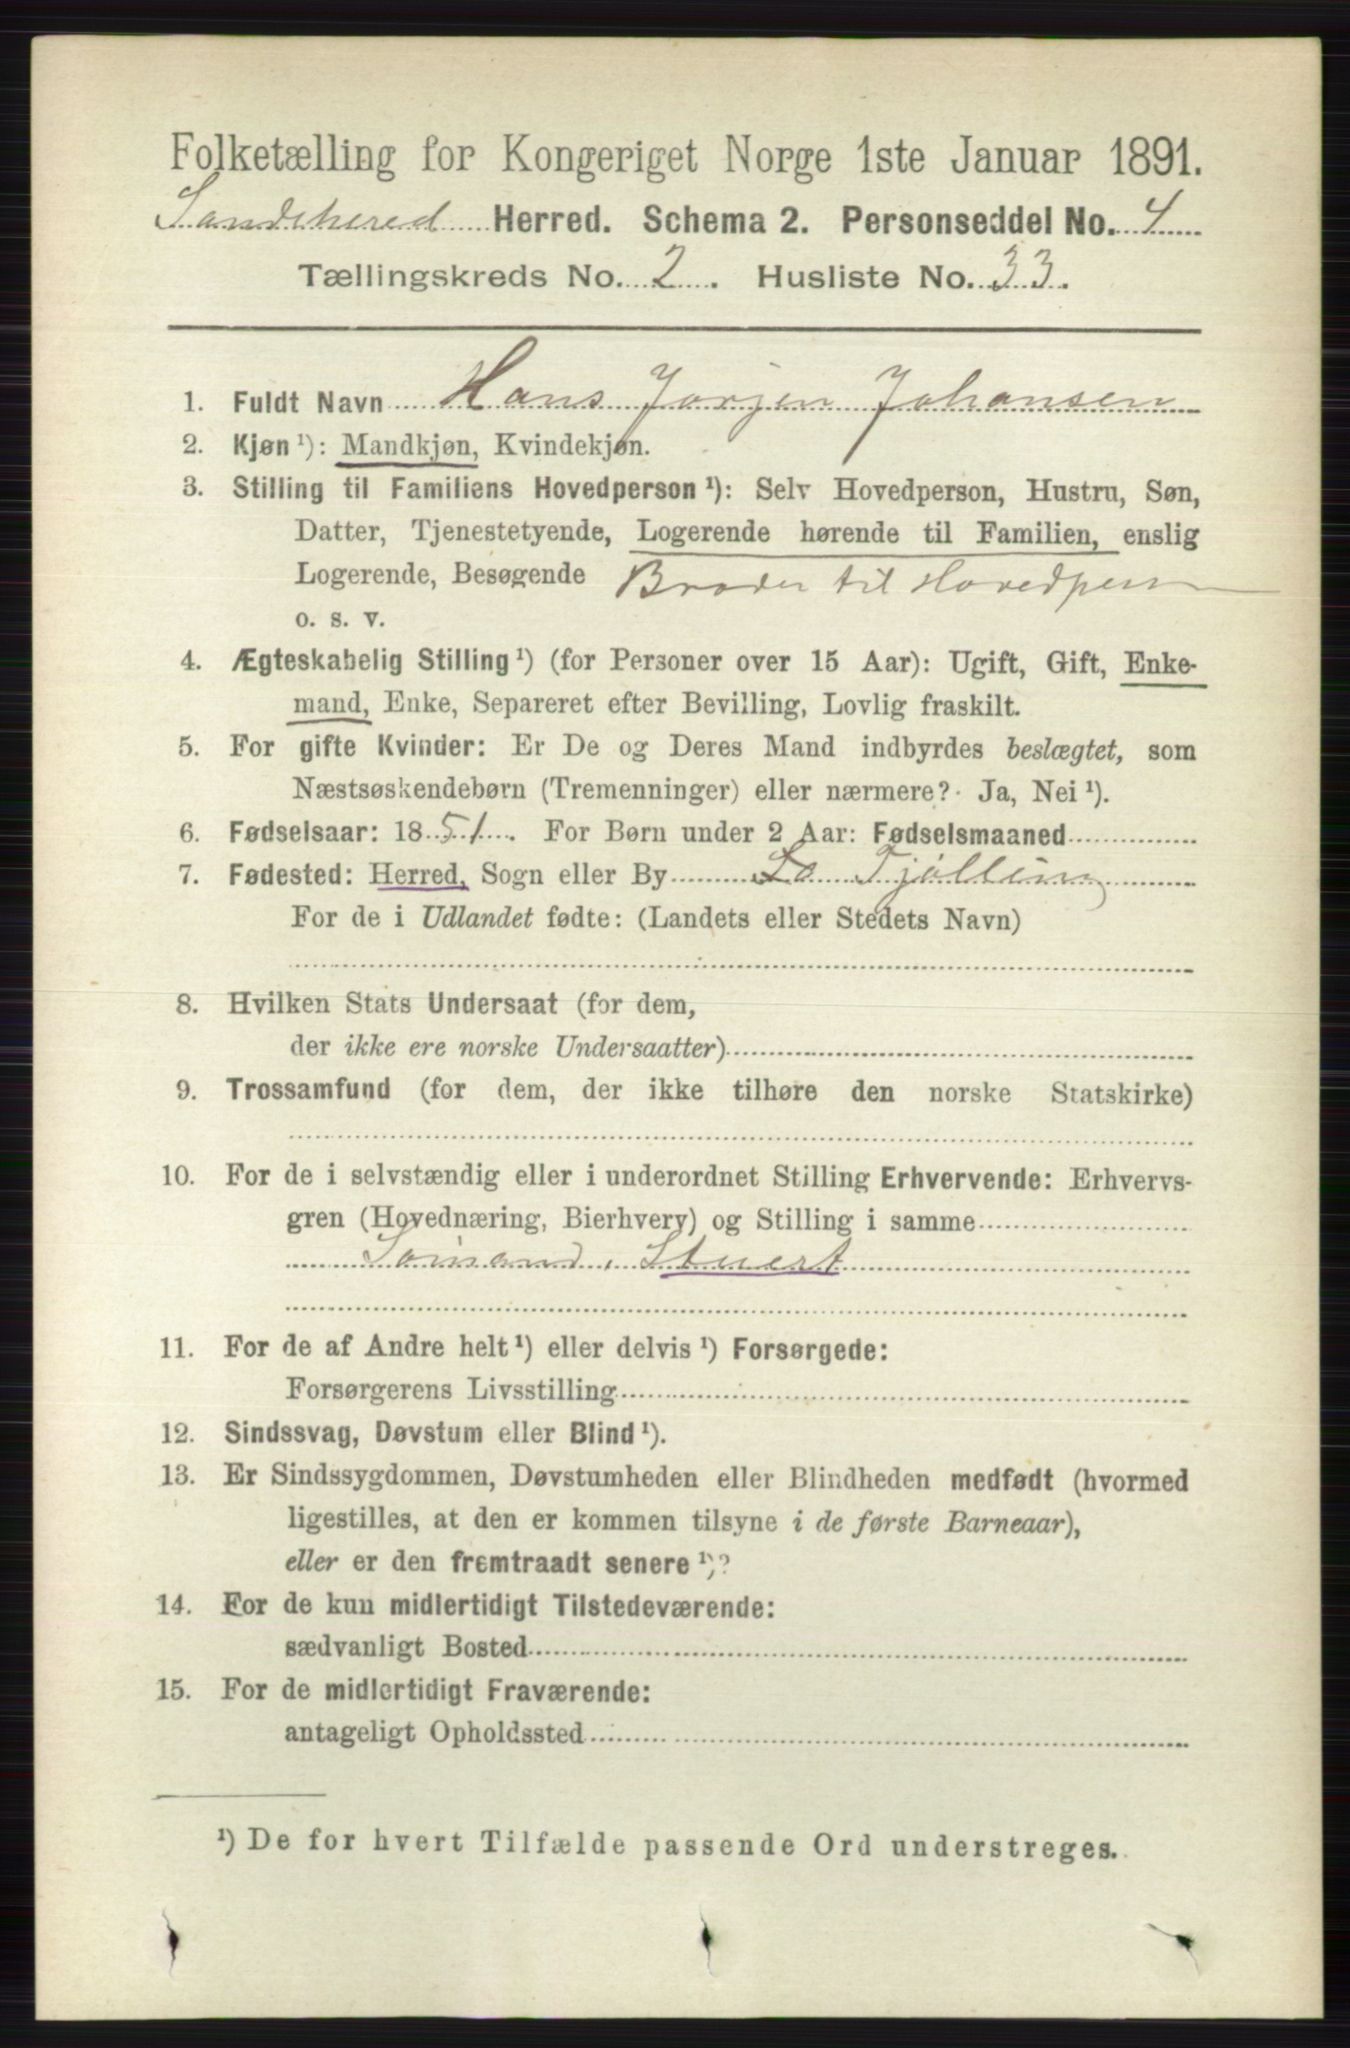 Folketælling for Kongeriget Norge 1ste Januar 1891.
Sandehered Herred. Schema 2. Personseddel No. 4
Tællingskreds No. 2. Husliste No. 33.
1. Fuldt Navn Hans Jørjen Johansen
2. Kjøn ¹): Mandkjøn, Kvindekjøn.
3. Stilling til Familiens Hovedperson ¹): Selv Hovedperson, Hustru, Søn,
Datter, Tjenestetyende, Logerende hørende til Familien, enslig
Logerende, Besøgende Broder til Hovedpers
o. s. v.
4. Ægteskabelig Stilling ¹) (for Personer over 15 Aar): Ugift, Gift, Enke-
mand, Enke, Separeret efter Bevilling, Lovlig fraskilt.
5. For gifte Kvinder: Er De og Deres Mand indbyrdes beslægtet, som
Næstsøskendebørn (Tremenninger) eller nærmere? Ja, Nei ¹).
6. Fødselsaar: 1851. For Børn under 2 Aar: Fødselsmaaned
7. Fødested: Herred, Sogn eller By Tjølling
For de i Udlandet fødte: (Landets eller Stedets Navn)
8. Hvilken Stats Undersaat (for dem,
der ikke ere norske Undersaatter)
9. Trossamfund (for dem, der ikke tilhøre den norske Statskirke)
10. For de i selvstændig eller i underordnet Stilling Erhvervende: Erhvervs-
gren (Hovednæring, Bierhverv) og Stilling i samme
Sømand, Stuert
11. For de af Andre helt ¹) eller delvis ¹) Forsørgede:
Forsørgerens Livsstilling
12. Sindssvag, Døvstum eller Blind ¹).
13. Er Sindssygdommen, Døvstumheden eller Blindheden medfødt (hvormed
ligestilles, at den er kommen tilsyne i de første Barneaar),
eller er den fremtraadt senere ¹)?
14. For de kun midlertidigt Tilstedeværende:
sædvanligt Bosted
15. For de midlertidigt Fraværende:
antageligt Opholdssted
¹) De for hvert Tilfælde passende Ord understreges.